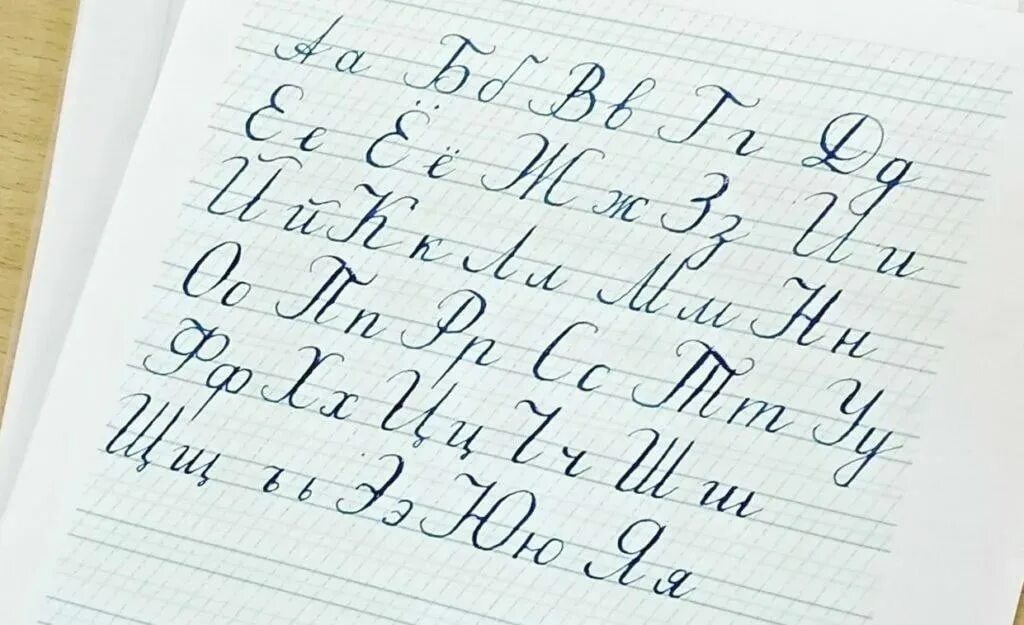 Аа Бб Вв Гг Дд
Ее Ёё Жж Зз Ии
Йй Кк Лл Мм Нн
Оо Пп Рр Сс Тт Уу
Фф Хх Цц Чч Шш
Щщ ъ ь Ээ Юю Яя